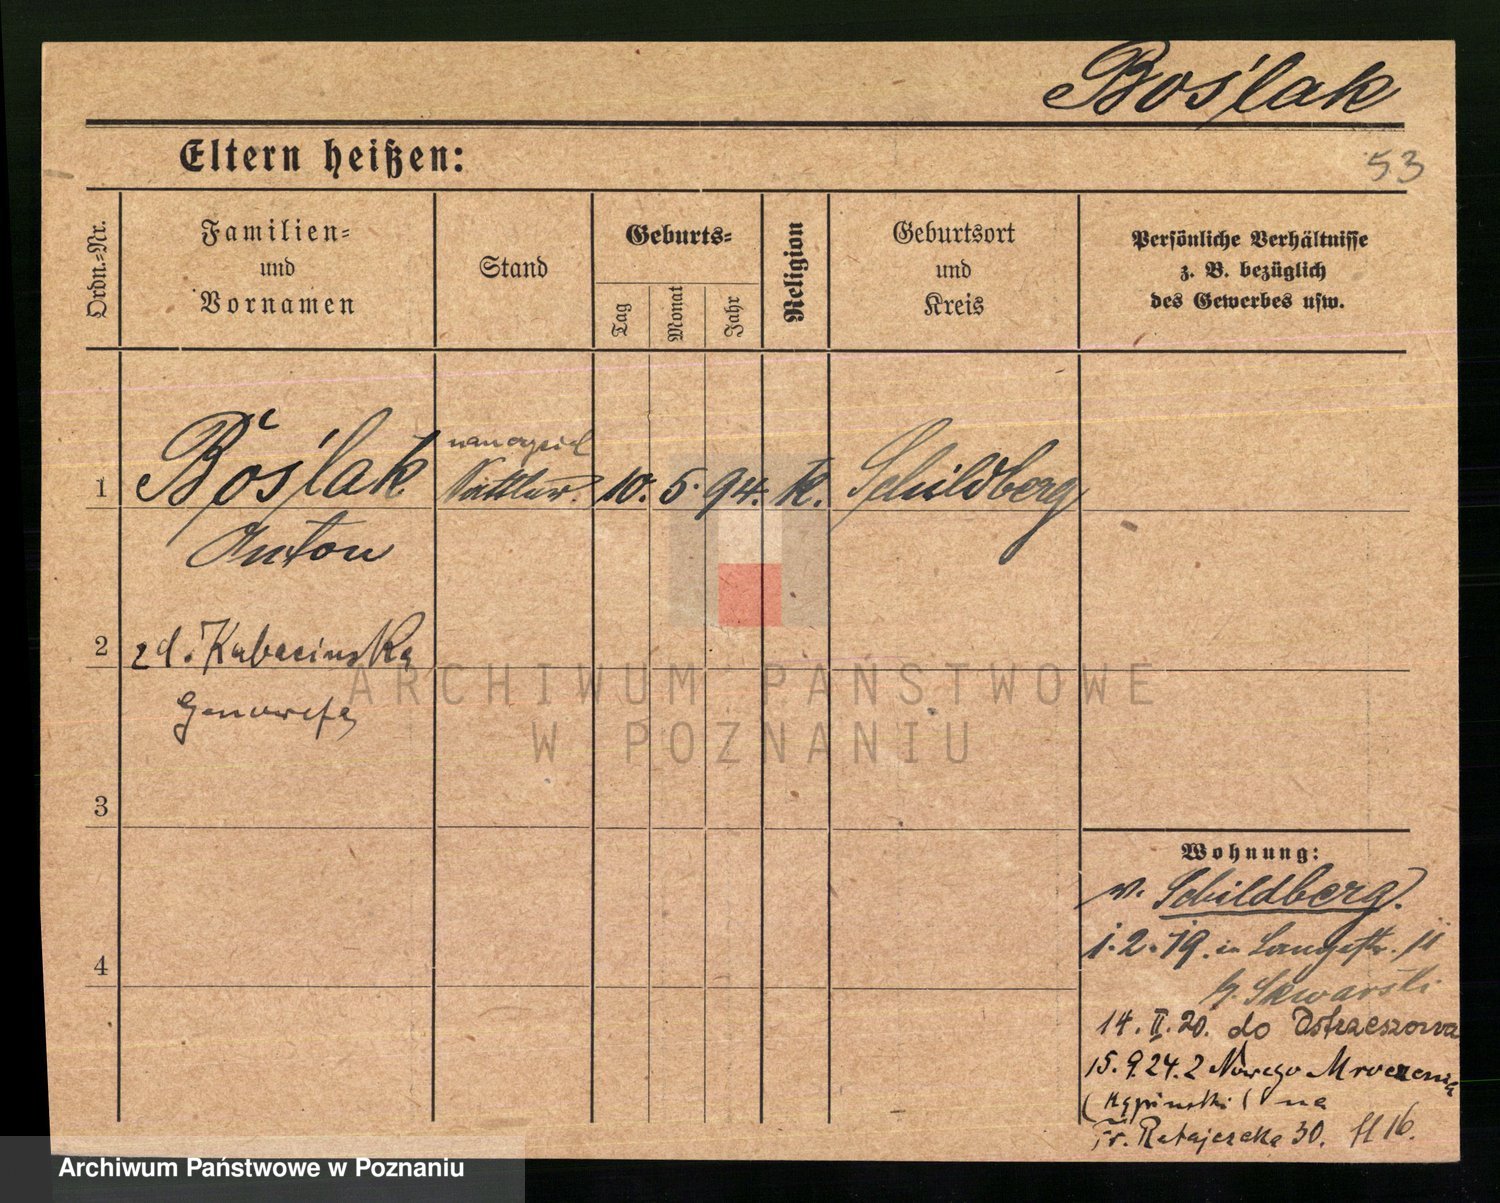 Boślak
Eltern heißen:
53
Ordn.-Nr.
Familien-
und
Vornamen
Stand
Geburts-
Tag
Monat
Jahr
Religion
Geburtsort
und
Kreis
Persönliche Verhältnisse
z. B. bezüglich
des Gewerbes usw.
1
Boślak
nauczyciel
10. 5. 94. k. Schildberg
Anton
2
zd. Kubacinska
Genowefa
3
4
Wohnung:
v. Schildberg.
1.2.19. in Langestr. 11
b. Skwarski
14. II. 20. do Ostrzeszowa
15.9.24. z Nowego Mroczenia
(Kępinski) na
Fr. Ratajczaka 30. 16.
ARCHIWUM PAŃSTWOWE
W POZNANIU
Archiwum Państwowe w Poznaniu